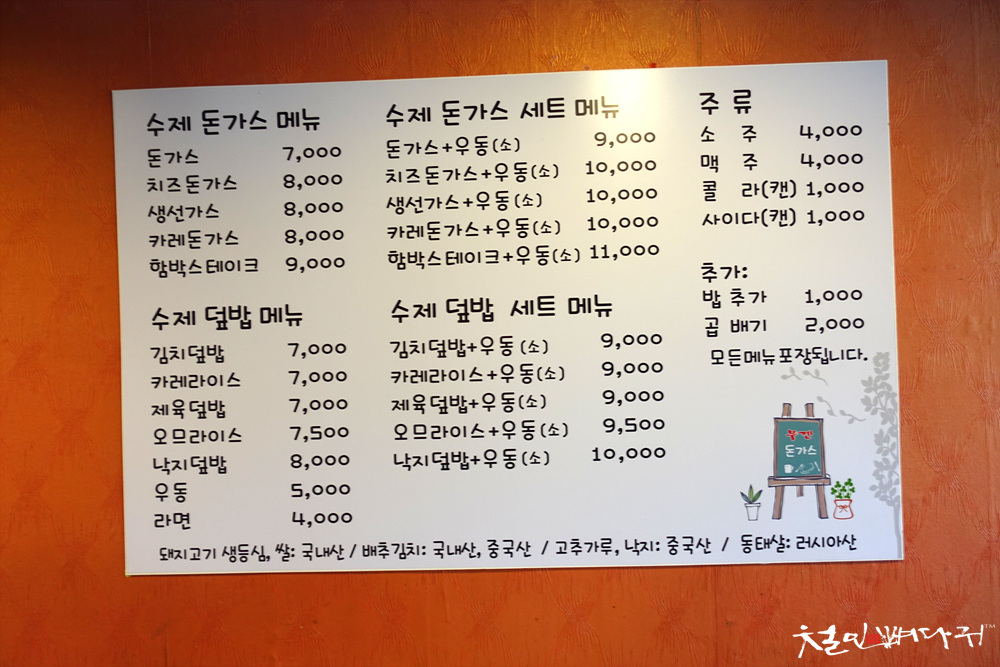 수제 돈가스 메뉴
돈가스 7,000
치즈돈가스 8,000
생선가스 8,000
카레돈가스 8,000
함박스테이크 9,000
수제 덮밥 메뉴
김치덮밥 7,000
카레라이스 7,000
제육덮밥 7,000
오므라이스 7,500
낙지덮밥 8,000
우동 5,000
라면 4,000
수제 돈가스 세트 메뉴
돈가스+우동(소) 9,000
치즈돈가스+우동(소) 10,000
생선가스+우동(소) 10,000
카레돈가스+우동(소) 10,000
함박스테이크+우동(소) 11,000
수제 덮밥 세트 메뉴
김치덮밥+우동(소) 9,000
카레라이스+우동(소) 9,000
제육덮밥+우동(소) 9,000
오므라이스+우동(소) 9,500
낙지덮밥+우동(소) 10,000
주 류
소 주 4,000
맥 주 4,000
콜 라(캔) 1,000
사이다(캔) 1,000
추가:
밥 추가 1,000
곱 배기 2,000
모든메뉴포장됩니다.
돈가스
돼지고기 생등심, 쌀: 국내산 / 배추김치: 국내산, 중국산 / 고추가루, 낙지: 중국산 / 동태살: 러시아산
철민뼈다귀™